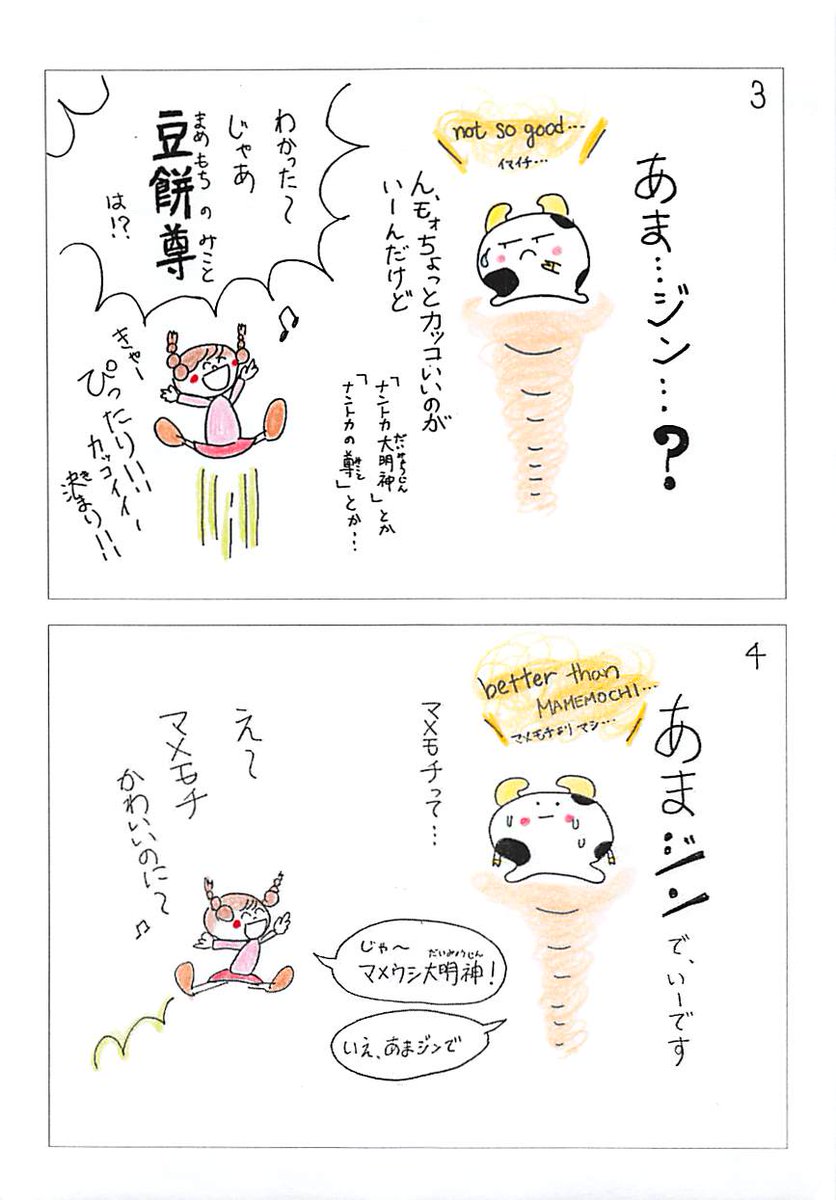 3
あま…ジン…?
not so good…
イマイチ…
ん、モォちょっとカッコいいのが
いーんだけど
「ナントカ大明神」とか
だいみょうじん
「ナントカの尊」とか…
みこと
わかった〜
じゃあ
豆餅尊
まめもちのみこと
は!?
きゃー
ぴったりいい
カッコイイー
決まり!!
き
4
あまジンで、いーです
better than
MAMEMOCHI…
マメモチよりマシ…
マメモチって…
え〜
マメモチ
かわいいのに〜
じゃ〜
マメウシ大明神!
だいみょうじん
いえ、あまジンで